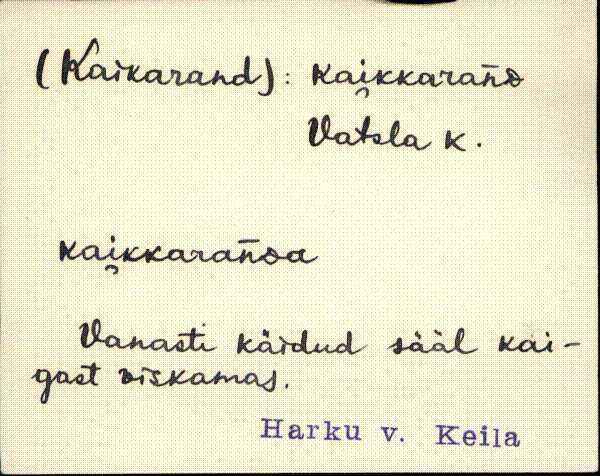 (Kaikarand): kai̯kkaran̄D
Vatsla k.
kai̯kkaran̄Da
Vanasti käidud sääl kai-
gast viskamas.
Harku v. Keila